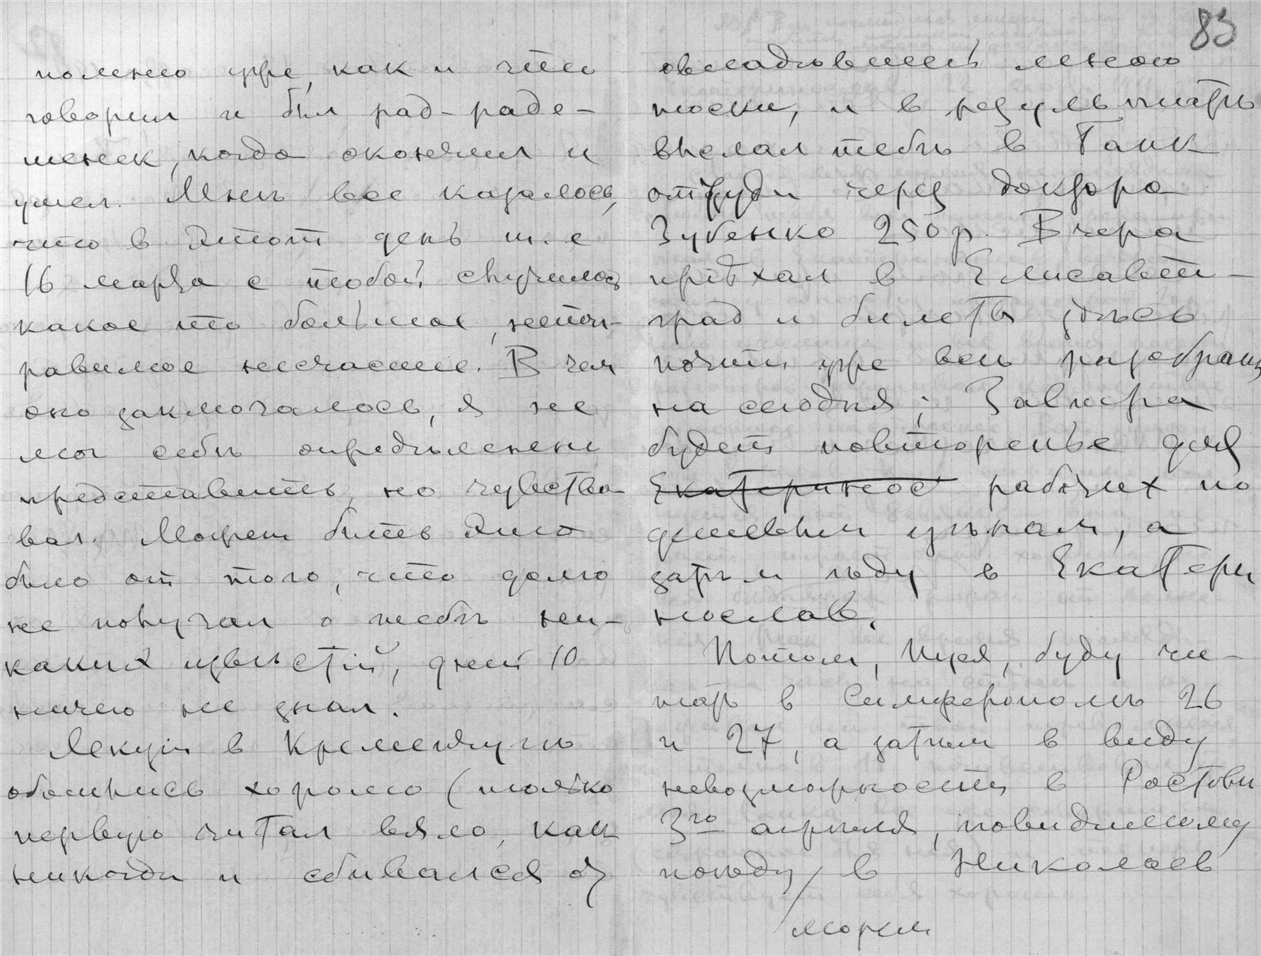 83
помню уже, как и что
говорил и был рад-раде-
шенек, когда окончил и
ушел. Мнѣ все казалось,
что в этот день т.е
16 марта с тобой случилось
какое то большое, непоп-
равимое несчастье. В чем
оно заключалось, я не
мог себѣ опредѣленно
представить, но чувство-
вал. Может быть это
было от того, что долго
не получал о тебѣ ни-
каких извѣстій, дней 10
ничего не знал.
Лекціи в Кременчугѣ
обошлись хорошо (только
первую читал вяло, как
никогда и сбивался от
овладѣвшей мною
тоски, и в результатѣ
выслал тебѣ в Банк
оттуда через доктора
Зубенко 250 р. Вчера
приѣхал в Елисавет-
град и билеты здѣсь
почти уже всѣ разобраны
на сегодня; Завтра
будет повторенье для
Екатериносл рабочих по
дешевым цѣнам, а
затѣм ѣду в Екатери
нослав.
Потом, Шуя, буду чи-
тать в Симферополѣ 26
и 27, а затѣм в виду
невозможности в Ростовѣ
3го апрѣля, повидимому
поѣду в Николаев
морем